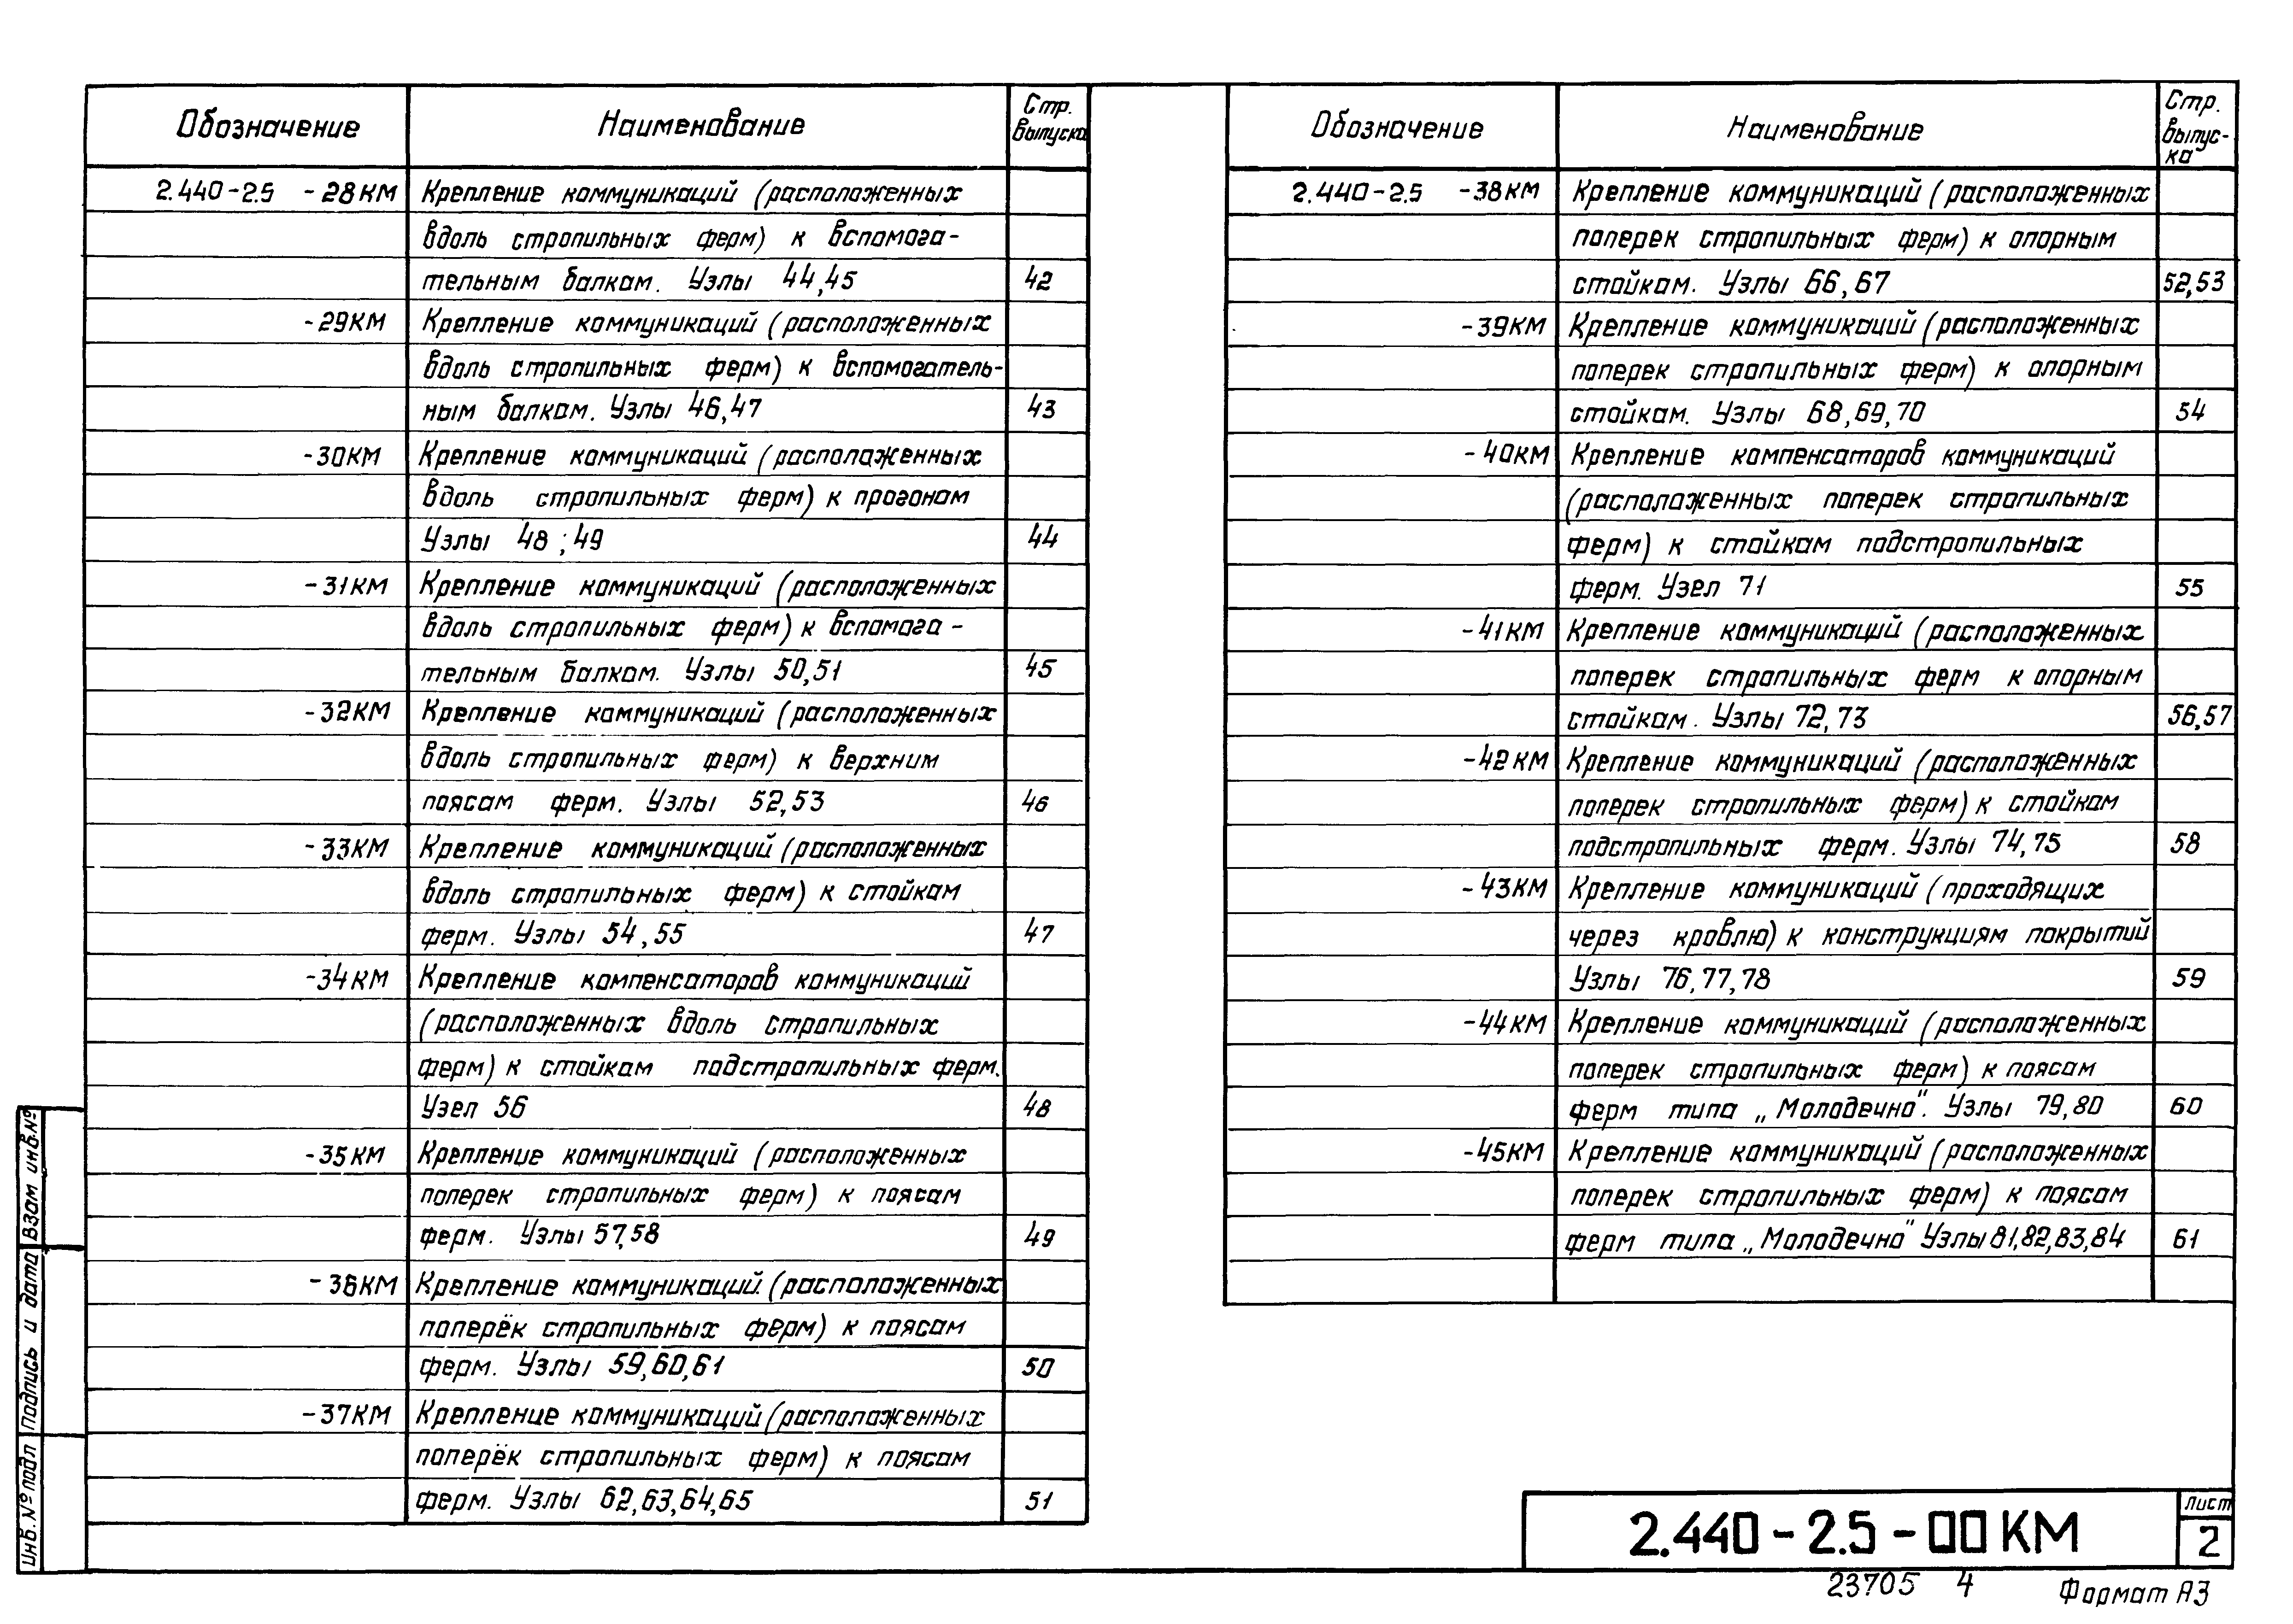 Обозначение Наименование Стр. выпуска
2.440-2.5 -28КМ Крепление коммуникаций (расположенных
вдоль стропильных ферм) к вспомога-
тельным балкам. Узлы 44,45 42
-29КМ Крепление коммуникаций (расположенных
вдоль стропильных ферм) к вспомогатель-
ным балкам. Узлы 46,47 43
-30КМ Крепление коммуникаций (расположенных
вдоль стропильных ферм) к прогонам
Узлы 48;49 44
-31КМ Крепление коммуникаций (расположенных
вдоль стропильных ферм) к вспомога-
тельным балкам. Узлы 50,51 45
-32КМ Крепление коммуникаций (расположенных
вдоль стропильных ферм) к верхним
поясам ферм. Узлы 52,53 46
-33КМ Крепление коммуникаций (расположенных
вдоль стропильных ферм) к стойкам
ферм. Узлы 54,55 47
-34КМ Крепление компенсаторов коммуникаций
(расположенных вдоль стропильных
ферм) к стойкам подстропильных ферм.
Узел 56 48
-35КМ Крепление коммуникаций (расположенных
поперек стропильных ферм) к поясам
ферм. Узлы 57,58 49
-36КМ Крепление коммуникаций (расположенных
поперёк стропильных ферм) к поясам
ферм. Узлы 59,60,61 50
-37КМ Крепление коммуникаций (расположенных
поперёк стропильных ферм) к поясам
ферм. Узлы 62,63,64,65 51
Обозначение Наименование Стр. выпус-
ка
2.440-2.5 -38КМ Крепление коммуникаций (расположенных
поперек стропильных ферм) к опорным
стойкам. Узлы 66,67 52,53
-39КМ Крепление коммуникаций (расположенных
поперек стропильных ферм) к опорным
стойкам. Узлы 68,69,70 54
-40КМ Крепление компенсаторов коммуникаций
(расположенных поперек стропильных
ферм) к стойкам подстропильных
ферм. Узел 71 55
-41КМ Крепление коммуникаций (расположенных
поперек стропильных ферм к опорным
стойкам. Узлы 72,73 56,57
-42КМ Крепление коммуникаций (расположенных
поперек стропильных ферм) к стойкам
подстропильных ферм. Узлы 74,75 58
-43КМ Крепление коммуникаций (проходящих
через кровлю) к конструкциям покрытий
Узлы 76,77,78 59
-44КМ Крепление коммуникаций (расположенных
поперек стропильных ферм) к поясам
ферм типа „Молодечно". Узлы 79,80 60
-45КМ Крепление коммуникаций (расположенных
поперек стропильных ферм) к поясам
ферм типа „Молодечно" Узлы 81,82,83,84 61
Инв.№подл Подпись и дата Взам инв.№
2.440-2.5-00КМ
Лист
2
23705 4
Формат А3